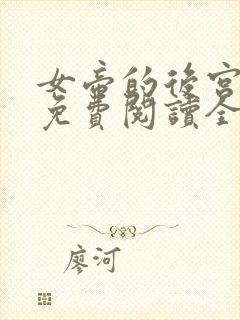 女帝的後宮
免費閱讀全
廖河